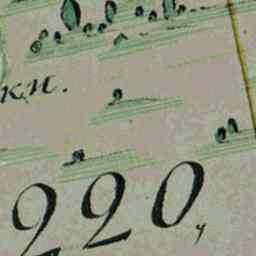 ки.
220